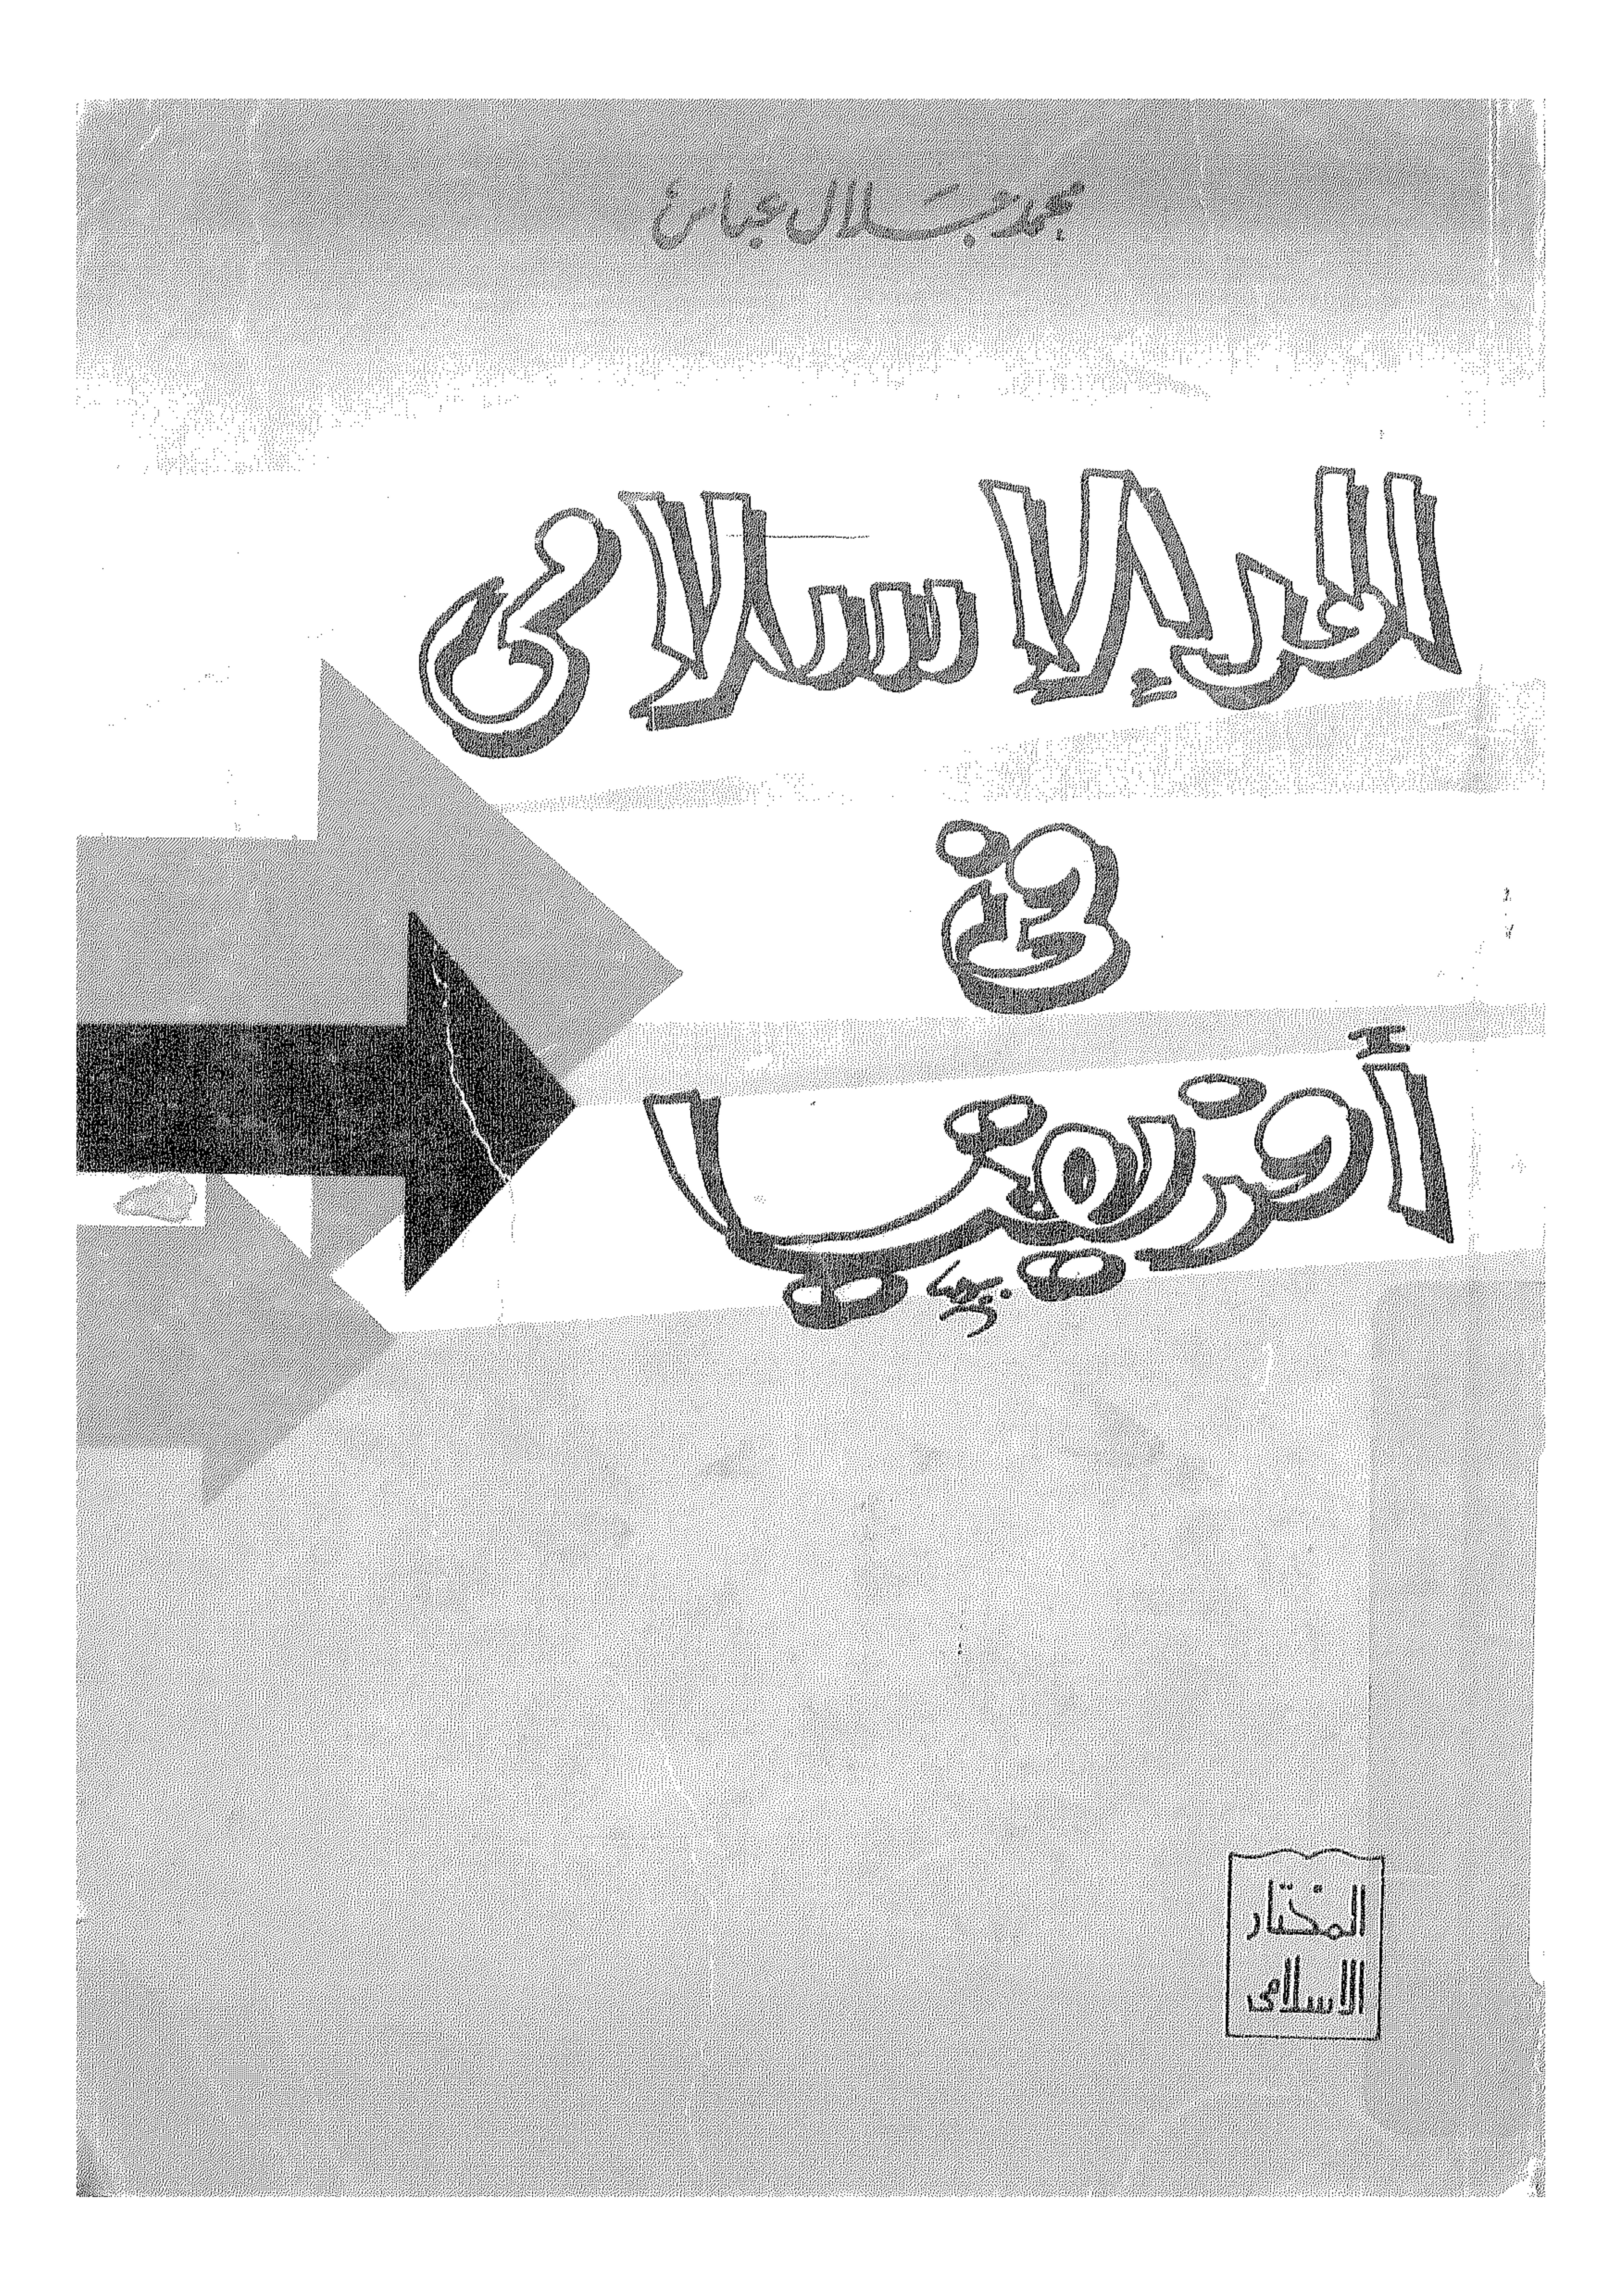 محمد جلال عباس
المد الإسلامى
فى
أفريقيا
المختار
الاسلامى